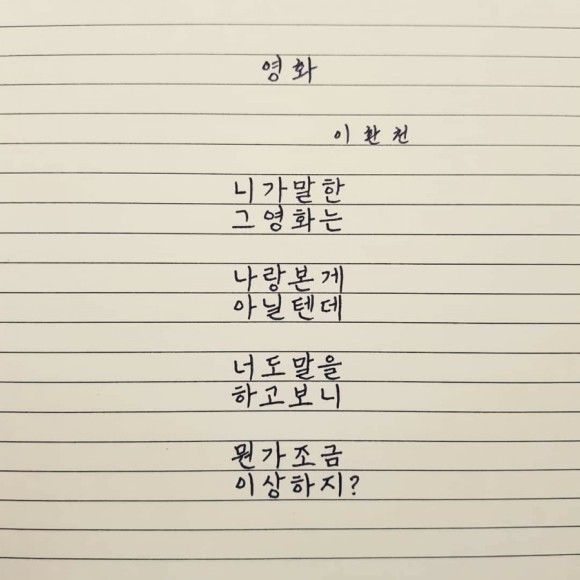 영화
이환천
니가말한
그영화는
나랑본게
아닐텐데
너도말을
하고보니
뭔가조금
이상하지?